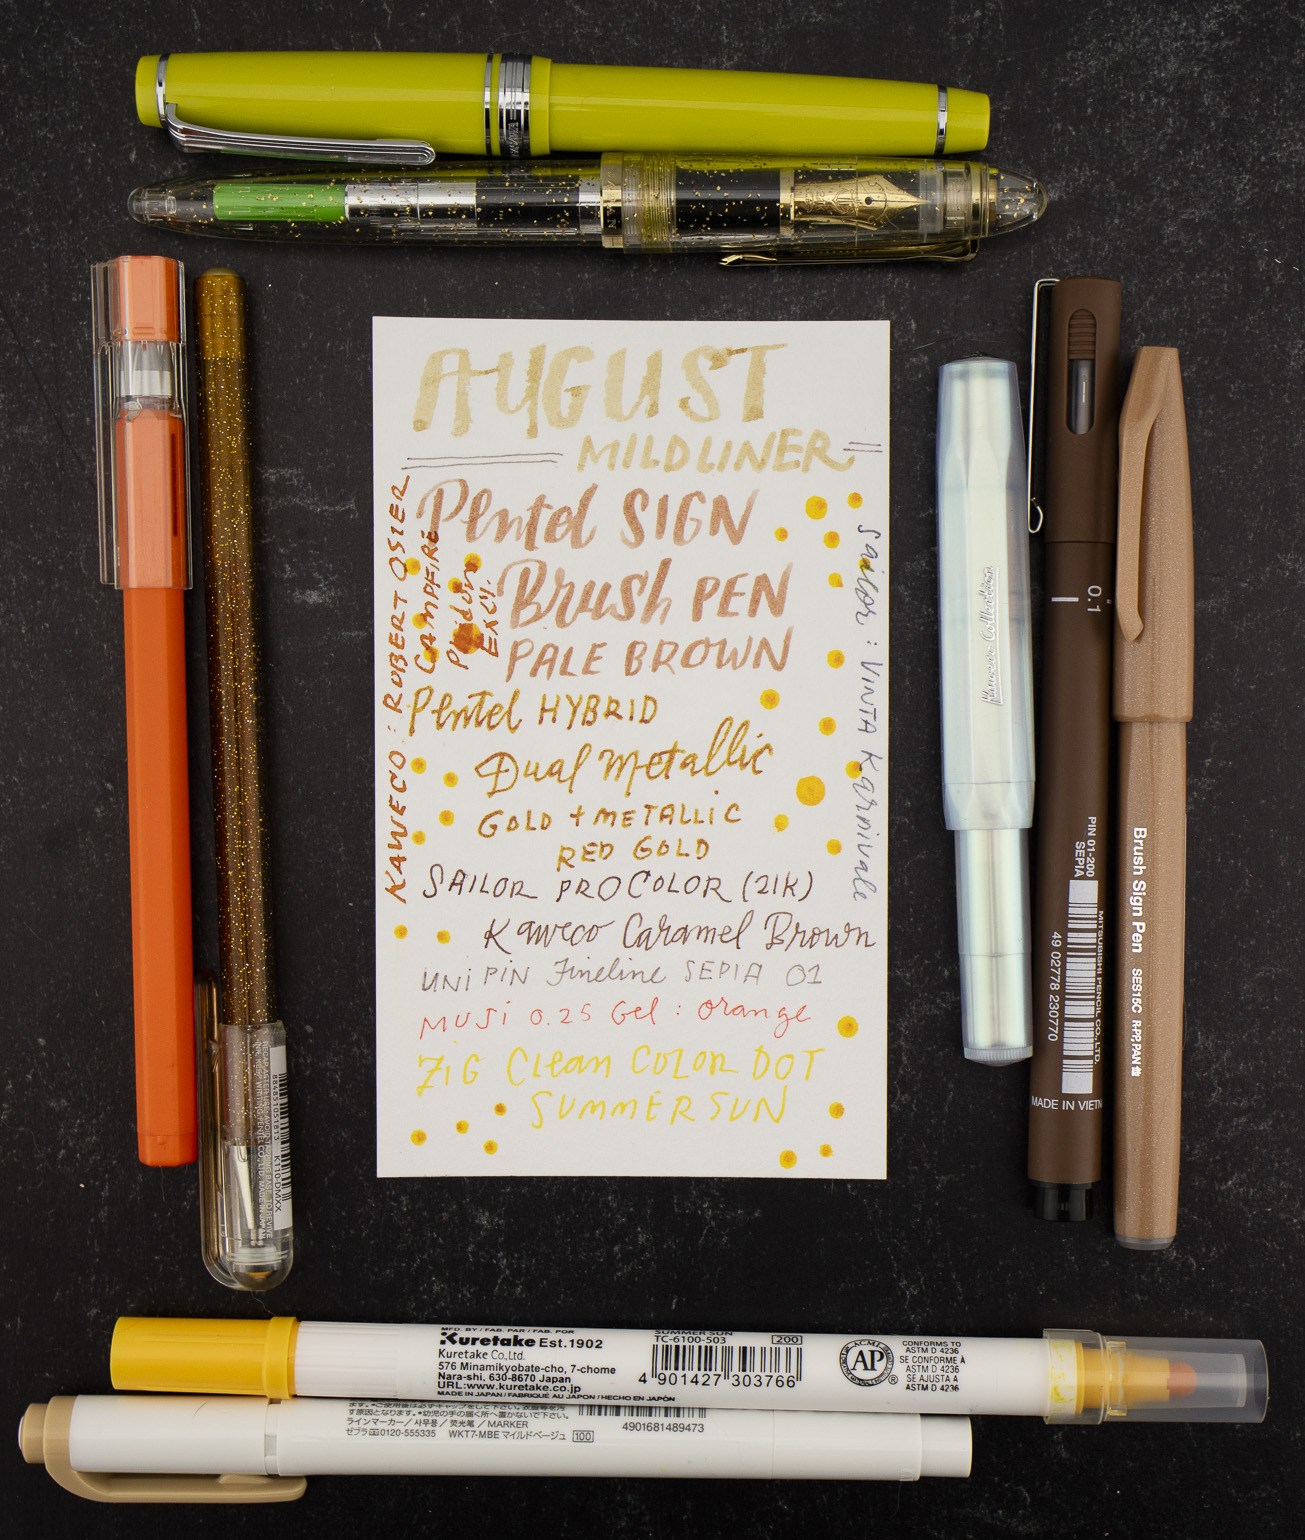 AUGUST
MILDLINER
Pentel SIGN
Brush PEN
PALE BROWN
Pentel HYBRID
Dual Metallic
GOLD + METALLIC
RED GOLD
SAILOR PROCOLOR (21K)
Kaweco Caramel Brown
UNI PIN Fineline SEPIA 01
MUJI 0.25 Gel : Orange
ZIG Clean COLOR DOT
SUMMER SUN
KAWECO : ROBERT OSTER
CAMPFIRE
SAILOR : VINTA KARNIVALE
0.1
PIN 01-200
SEPIA
MITSUBISHI PENCIL CO., LTD.
49 02778 230770
MADE IN VIETN
Brush Sign Pen SES15C
K110-DMXX
884851051813
MFD. BY / FAB. PAR / FAB. POR
Kuretake Est.1902
Kuretake Co.,Ltd.
576 Minamikyobate-cho, 7-chome
Nara-shi, 630-8670 Japan
URL:www.kuretake.co.jp
MADE IN JAPAN / FABRIQUÉ AU JAPON / HECHO EN JAPÓN
SUMMER SUN
TC-6100-503 200
4 901427 303766
AP
CONFORMS TO
ASTM D 4236
SE CONFORME À
ASTM D 4236
SE AJUSTA A
ASTM D 4236
ラインマーカー／사우용／荧光笔／MARKER
ゼブラ 0120-555335 WKT7-MBE マイルドベージュ 100
4901681489473